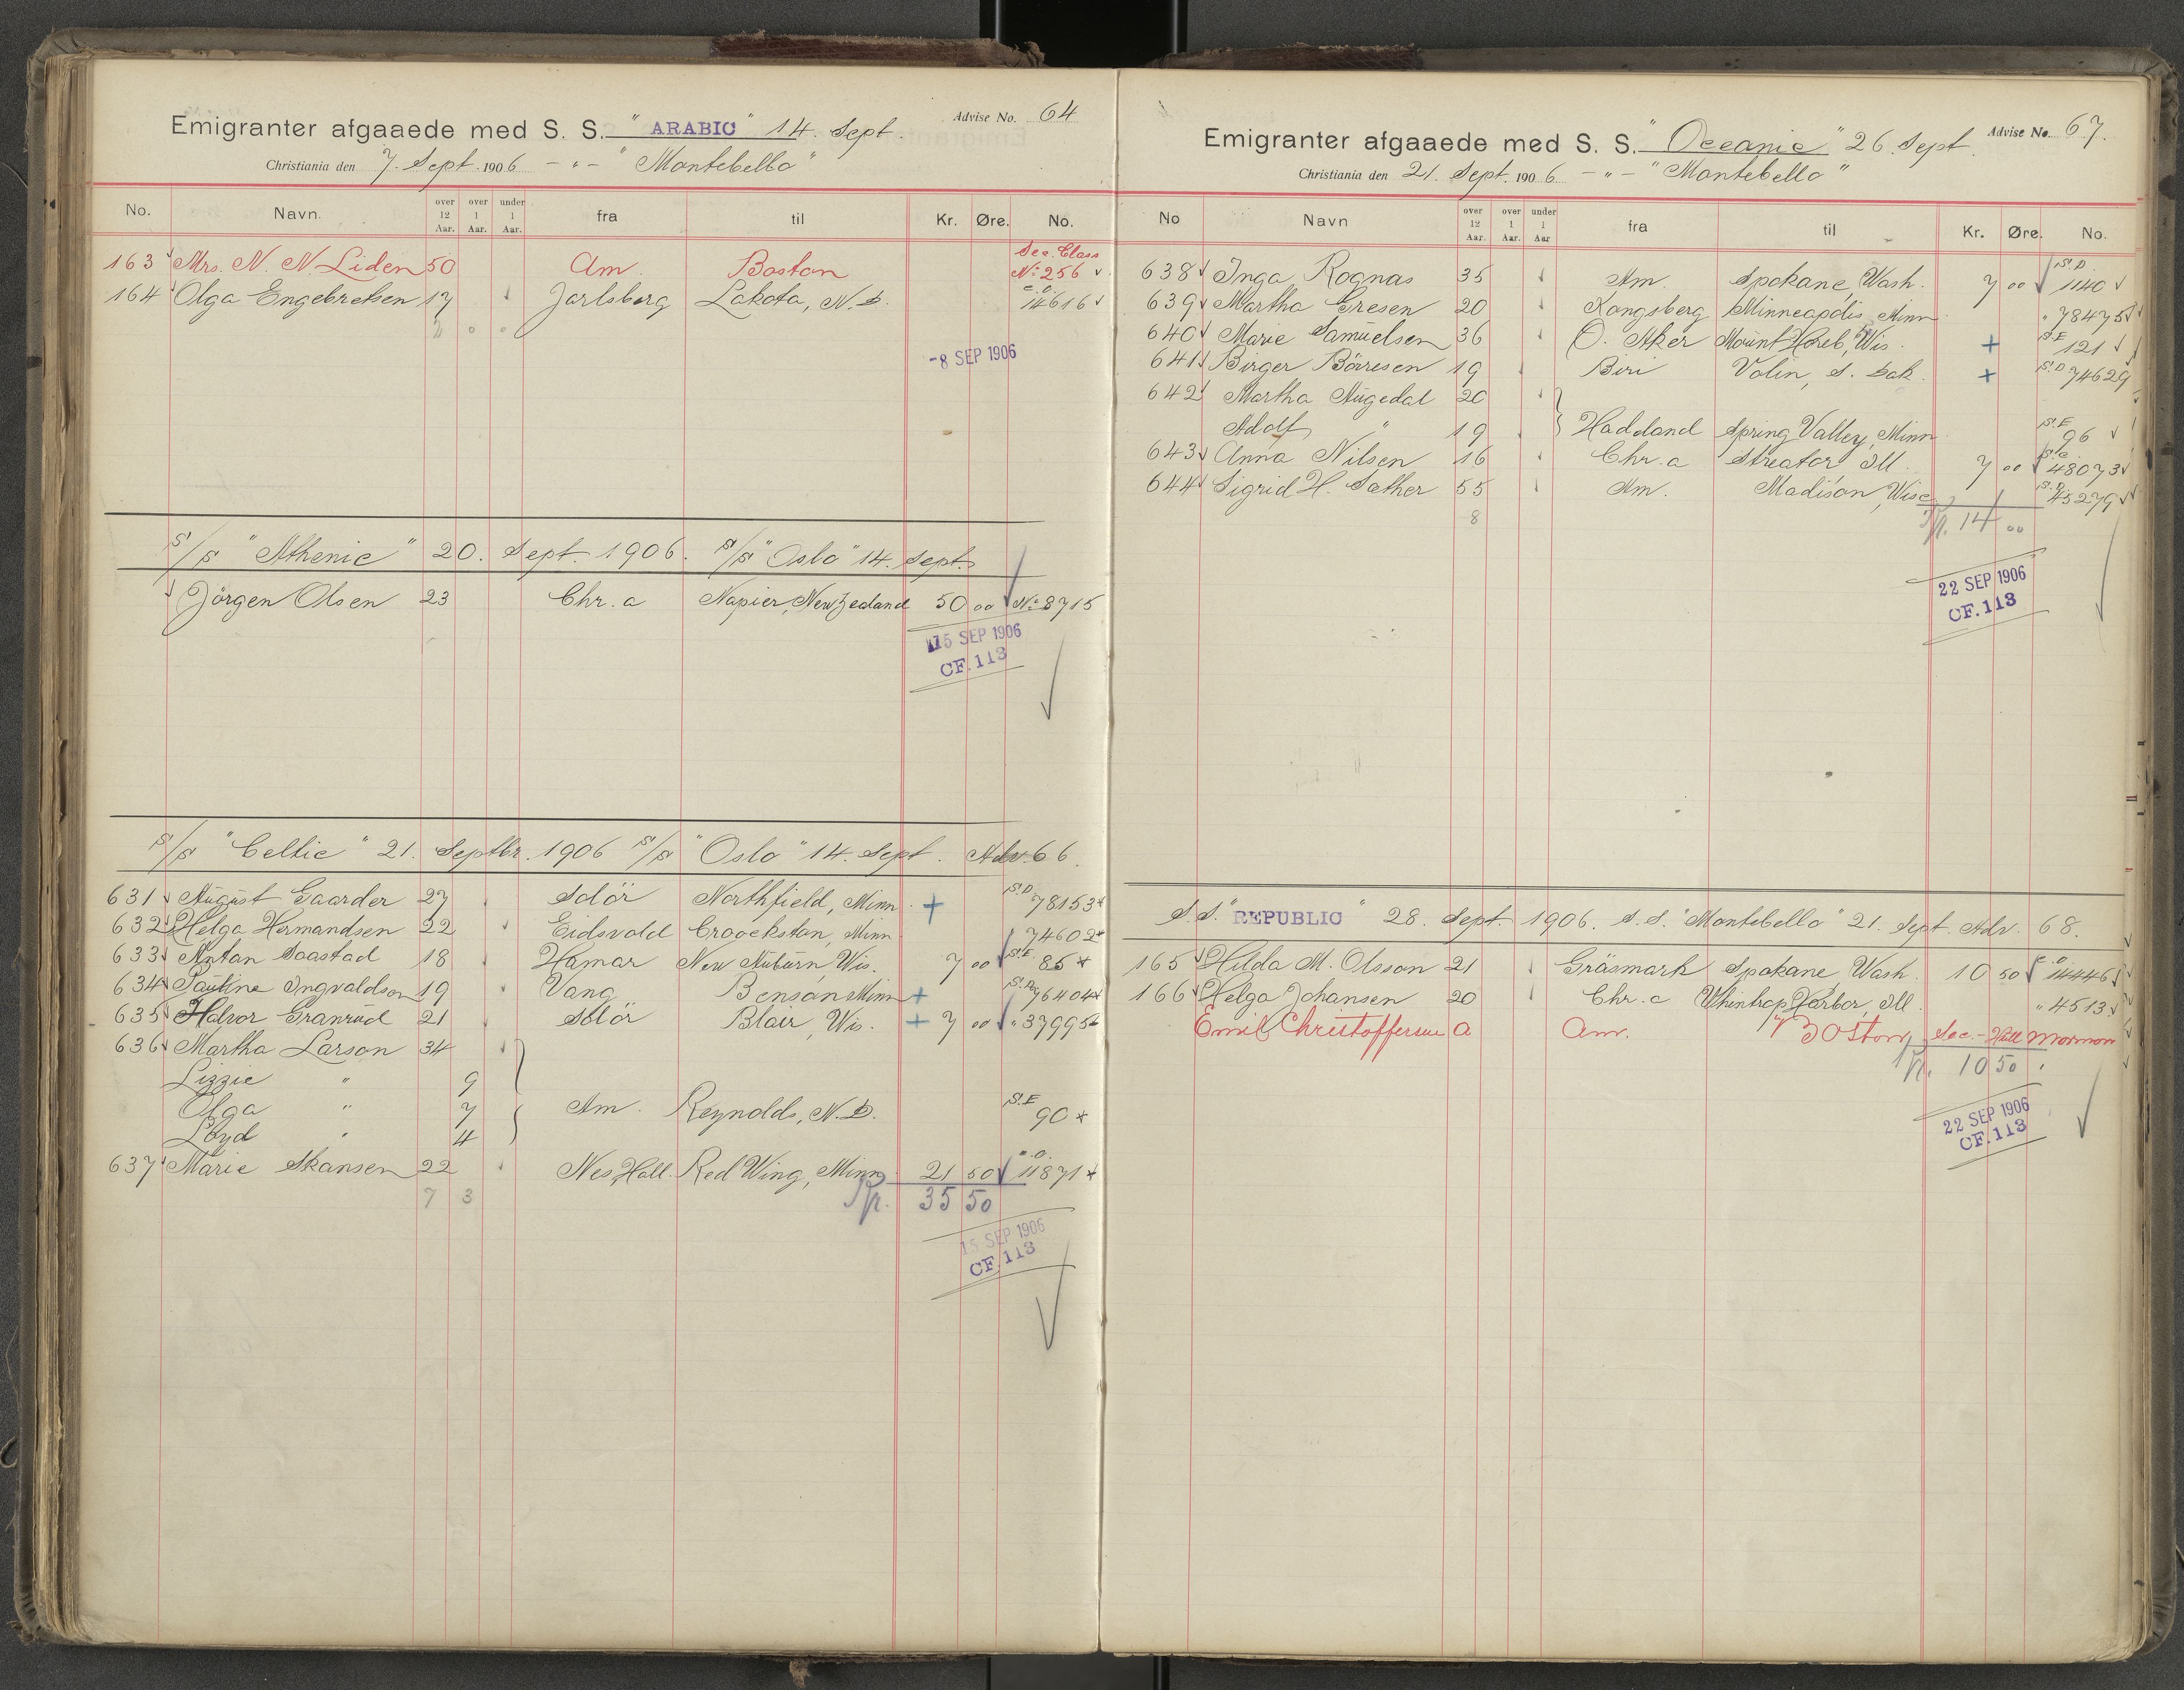 Advise No. 64
Emigranter afgaaede med S. S. "ARABIC" 14. Sept.
Christiania den 7. Sept. 1906 - " - "Montebello"
No. Navn. over 12 Aar. over 1 Aar. under 1 Aar. fra til Kr. Øre. No.
163 Mrs. N. N. Liden 50 Am. Boston Sec. Class No. 256
164 Olga Engebretsen 17 Jarlsberg Lakota, N.D. 14616
2 0 0
-8 SEP 1906
S/S "Athenic" 20. Sept. 1906. S/S "Oslo" 14. Sept.
Jörgen Olsen 23 Chr.a Napier, New Zealand 50 00 No. 8715
15 SEP 1906
CF. 113
S/S "Celtic" 21. Septbr. 1906 S/S "Oslo" 14. Sept. Adv. 66.
631 August Gaarder 27 Solör Northfield, Minn. + S.D 78153
632 Helga Hermandsen 22 Eidsvold Croockston, Minn. 74602
633 Anton Saastad 18 Hamar New Auburn, Wis. 7 00 S.E 85
634 Pauline Ingvaldson 19 Vang Benson Minn + 76404
635 Halvor Granrud 21 Solör Blair, Wis. + 7 00 " 37995
636 Martha Larson 34
Lizzie " 9
Olga " 7 Am. Reynolds, N.D. S.E 90
Loyd " 4
637 Marie Skansen 22 Nes, Hall. Red Wing, Minn 21 50 11871
7 3 35 50
15 SEP 1906
CF. 113
Advise No. 67.
Emigranter afgaaede med S. S. "Oceanic" 26. Sept.
Christiania den 21. Sept. 1906. - " - "Montebello"
No Navn over 12 Aar. over 1 Aar. under 1 Aar fra til Kr. Øre. No.
638 Inga Rognas 35 Am. Spokane, Wash. 7 00 S.D 1140
639 Martha Eresen 20 Kongsberg Minneapolis, Minn. " 78475
640 Marie Samuelsen 36 O. Aker Mount Horeb, Wis. + S.E 121
641 Birger Börresen 19 Biri Volin, S. Dak. + S.D 74629
642 Martha Augedal 20
Adolf " 19 Hadeland Spring Valley, Minn. S.E 96
643 Anna Nilsen 16 Chr.a Streator Ill. 7 00 48073
644 Sigrid H. Sæther 55 Am. Madison, Wisc. S.D 45279
8 14 00
22 SEP 1906
CF. 113
S.S. "REPUBLIC" 28. Sept. 1906. S.S. "Montebello" 21. Sept. Adv. 68.
165 Hilda M. Olsson 21 Gräsmark Spokane, Wash. 10 50 14446
166 Helga Johansen 20 Chr.a Whintrop Harbor, Ill. " 4513
Emil Christoffersen a Am. Boston Sec. - Hull Mormon
10 50
22 SEP 1906
CF. 113